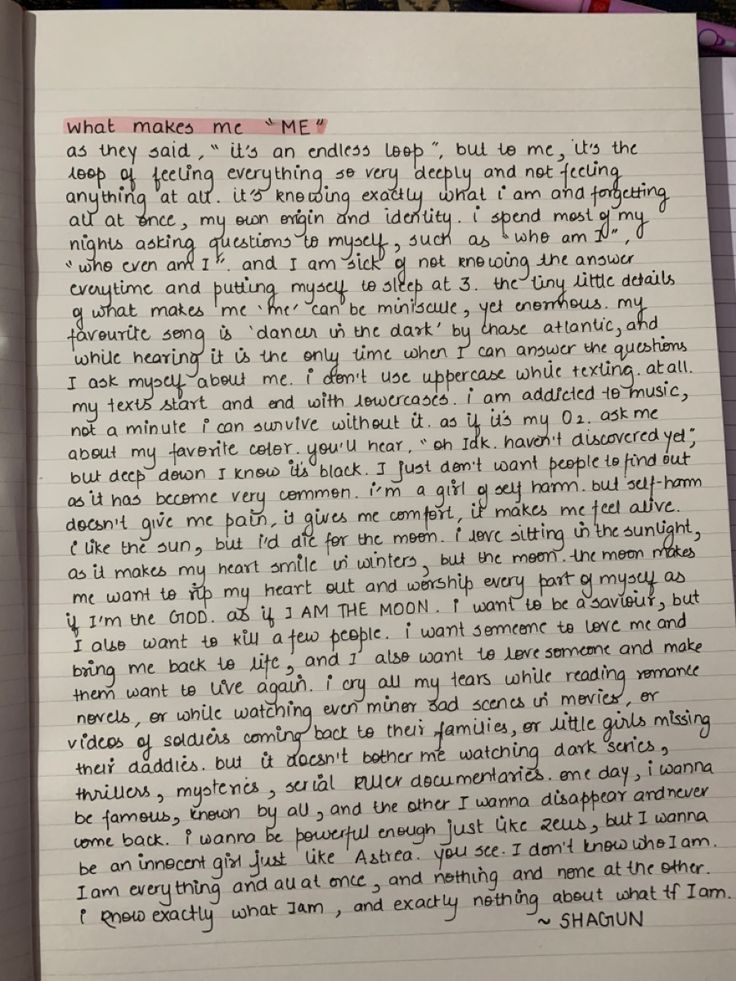 what makes me "ME"
as they said, "it's an endless loop", but to me, it's the
loop of feeling everything so very deeply and not feeling
anything at all. it's knowing exactly what i am and forgetting
all at once, my own origin and identity. i spend most of my
nights asking questions to myself, such as "who am I",
"who even am I". and I am sick of not knowing the answer
everytime and putting myself to sleep at 3. the tiny little details
of what makes 'me 'me' can be miniscule, yet enormous. my
favourite song is 'dancer in the dark' by chase atlantic, and
while hearing it is the only time when I can answer the questions
I ask myself about me. i don't use uppercase while texting. at all.
my texts start and end with lowercases. i am addicted to music,
not a minute i can survive without it. as if it's my O2. ask me
about my favorite color. you'll hear, "oh Idk. haven't discovered yet",
but deep down I know it's black. I just don't want people to find out
as it has become very common. i'm a girl of self harm. but self-harm
doesn't give me pain, it gives me comfort, it makes me feel alive.
i like the sun, but i'd die for the moon. i love sitting in the sunlight,
as it makes my heart smile in winters, but the moon. the moon makes
me want to rip my heart out and worship every part of myself as
if I'm the GOD. as if I AM THE MOON. i want to be a saviour, but
I also want to kill a few people. i want someone to love me and
bring me back to life, and I also want to love someone and make
them want to live again. i cry all my tears while reading romance
novels, or while watching even minor sad scenes in movies, or
videos of soldiers coming back to their families, or little girls missing
their daddies. but it doesn't bother me watching dark series,
thrillers, mysteries, serial killer documentaries. one day, i wanna
be famous, known by all, and the other I wanna disappear and never
come back. i wanna be powerful enough just like zeus, but I wanna
be an innocent girl just like Astrea. you see. I don't know who I am.
I am everything and all at once, and nothing and none at the other.
i know exactly what I am, and exactly nothing about what tf I am.
~ SHAGUN